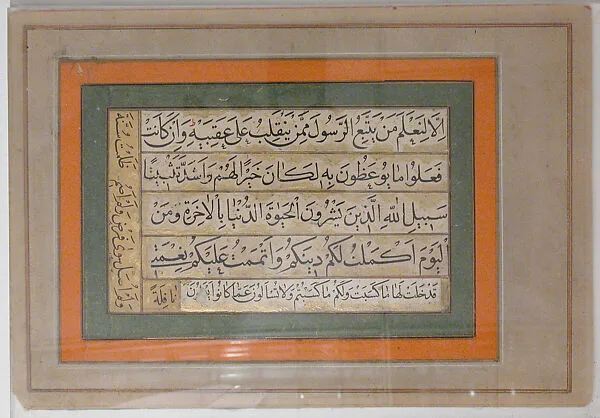 إِلَّا لِنَعْلَمَ مَنْ يَتَّبِعُ الرَّسُولَ مِمَّنْ يَنْقَلِبُ عَلَى عَقِبَيْهِ وَإِنْ كَانَتْ
فَعَلُوا مَا يُوعَظُونَ بِهِ لَكَانَ خَيْرًا لَهُمْ وَأَشَدَّ تَثْبِيتًا
سَبِيلِ اللهِ الَّذِينَ يَشْرُونَ الْحَيٰوةَ الدُّنْيَا بِالْآخِرَةِ وَمَنْ
الْيَوْمَ أَكْمَلْتُ لَكُمْ دِينَكُمْ وَأَتْمَمْتُ عَلَيْكُمْ نِعْمَتِي
قد خلت لها ما كسبت ولكم ما كسبتم ولا تسألون عما كانوا
نافلة
ولم اصل سوى فرض ولم اصم ظلمت سنة